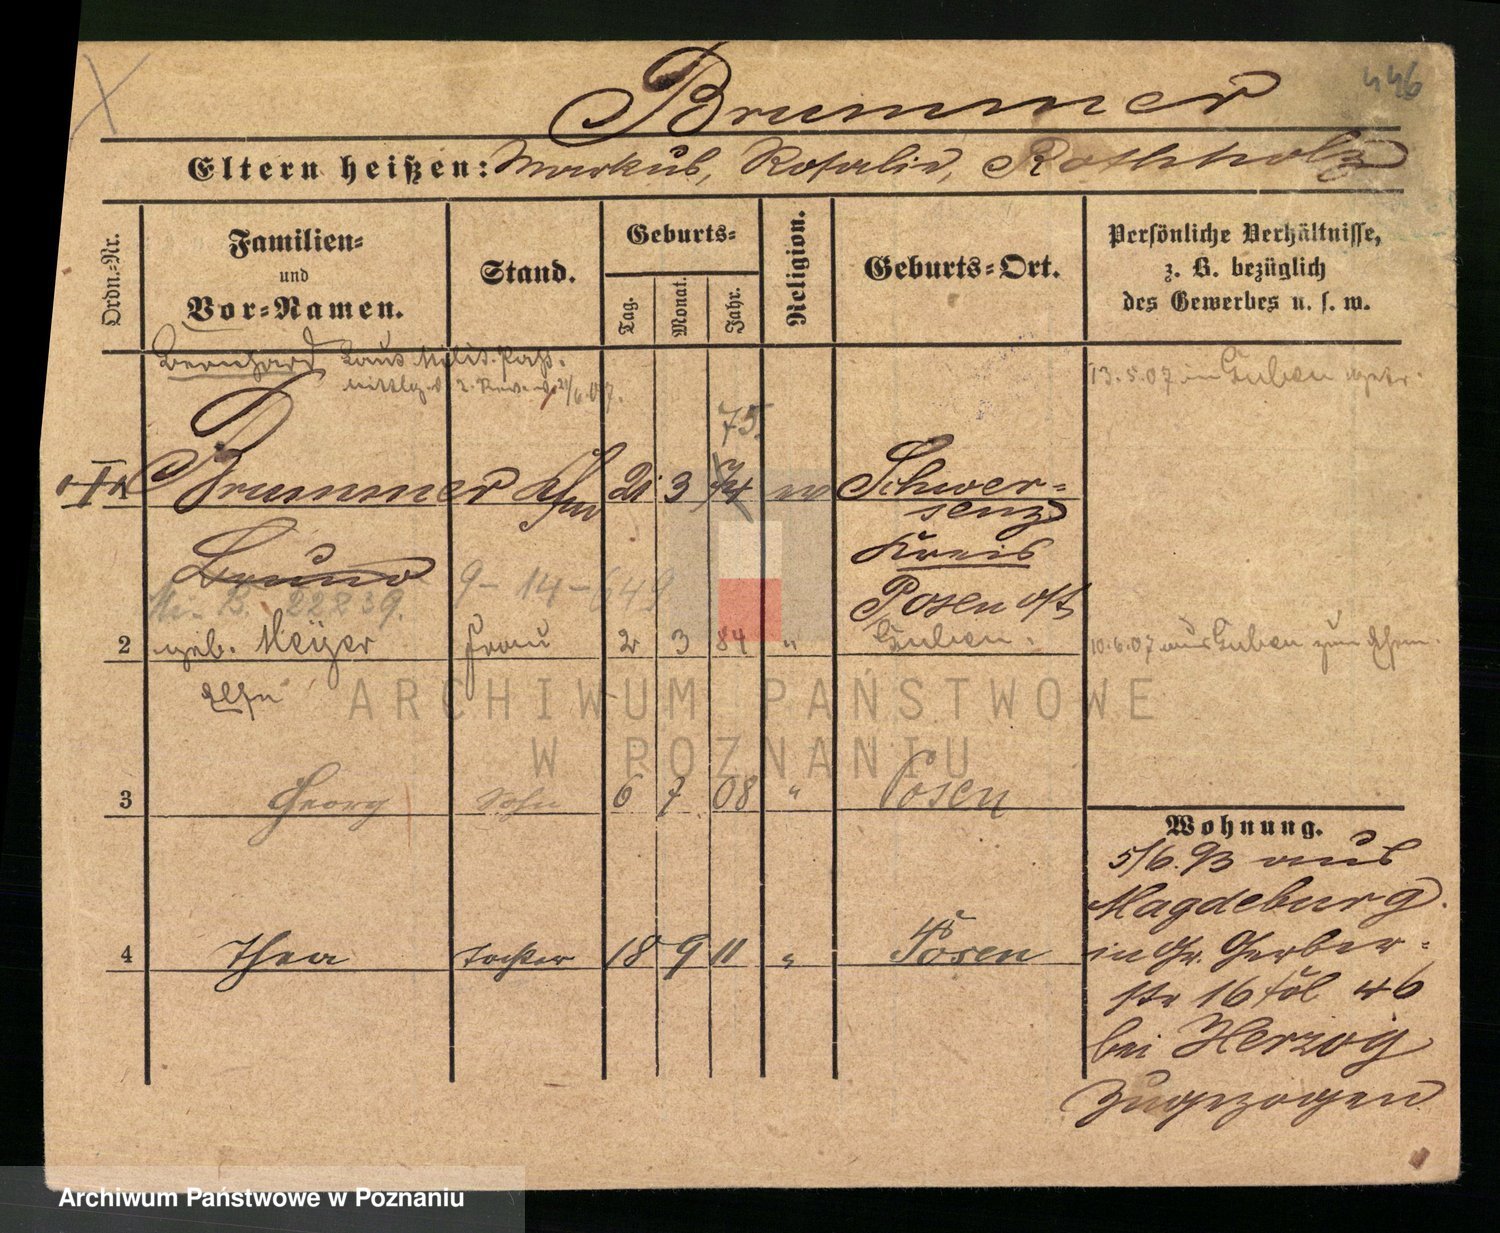 446
Brummer
Eltern heißen: Markus, Rosalie, Rothholz
Ordn.-Nr.
Familien-
und
Vor-Namen.
Stand.
Geburts-
Tag.
Monat.
Jahr.
Religion.
Geburts-Ort.
Persönliche Verhältnisse,
z. B. bezüglich
des Gewerbes u. s. w.
Bernhard laut Milit. Paß.
13.5.07 in Guben
75.
Brummer Kfm 21 3 74 Schwer-
senz
Kreis
Posen Ost
Bruno
B. 22839.
9-14-649
2 geb. Meyer Frau 2 3 84 " Guben.
10.6.07 aus Guben zum
Else
3 Georg Sohn 6 7 08 " Posen
4 Thea Tochter 18 9 11 " Posen
Wohnung.
5/6.93 aus
Magdeburg.
in Gr. Gerber-
str 16 46
bei Herzog
zugezogen
ARCHIWUM PAŃSTWOWE
W POZNANIU
Archiwum Państwowe w Poznaniu